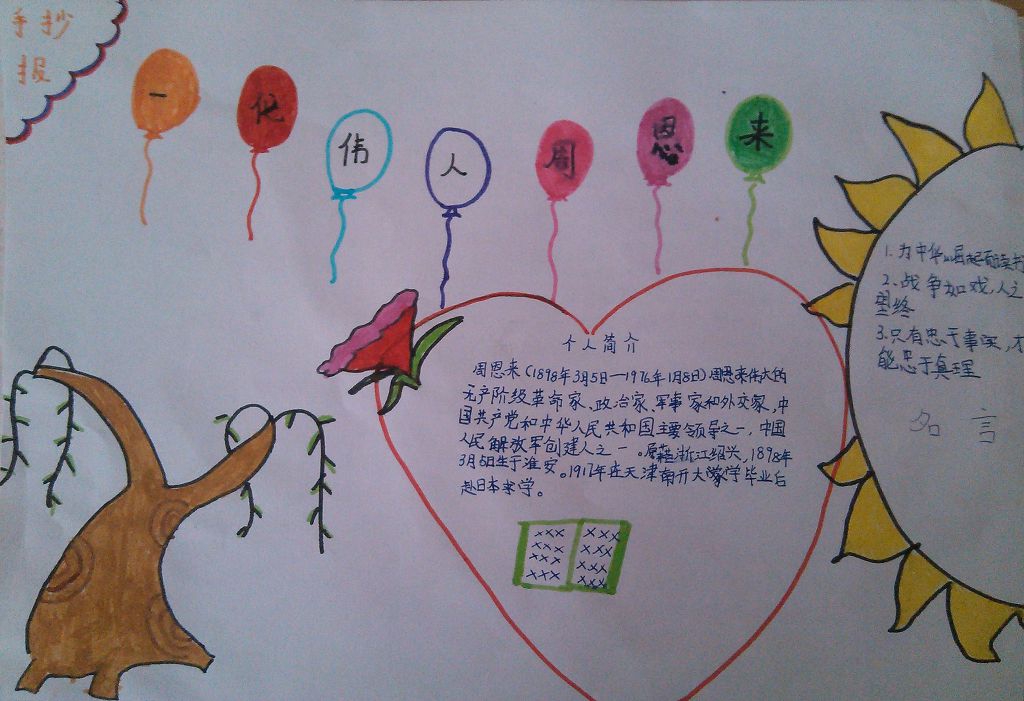 手抄
报
一代伟人周恩来
个人简介
周恩来(1898年3月5日—1976年1月8日)周恩来伟大的
无产阶级革命家、政治家、军事家和外交家,中
国共产党和中华人民共和国主要领导之一,中国
人民解放军创建人之一。原籍浙江绍兴,1898年
3月5日生于淮安。1917年在天津南开大学毕业后
赴日本求学。
xxx xxx
xxx xxx
xxx xxx
xxx xxx
1.为中华崛起而读书
2.战争如戏,人之
望终
3.只有忠于事实,才
能忠于真理
名言